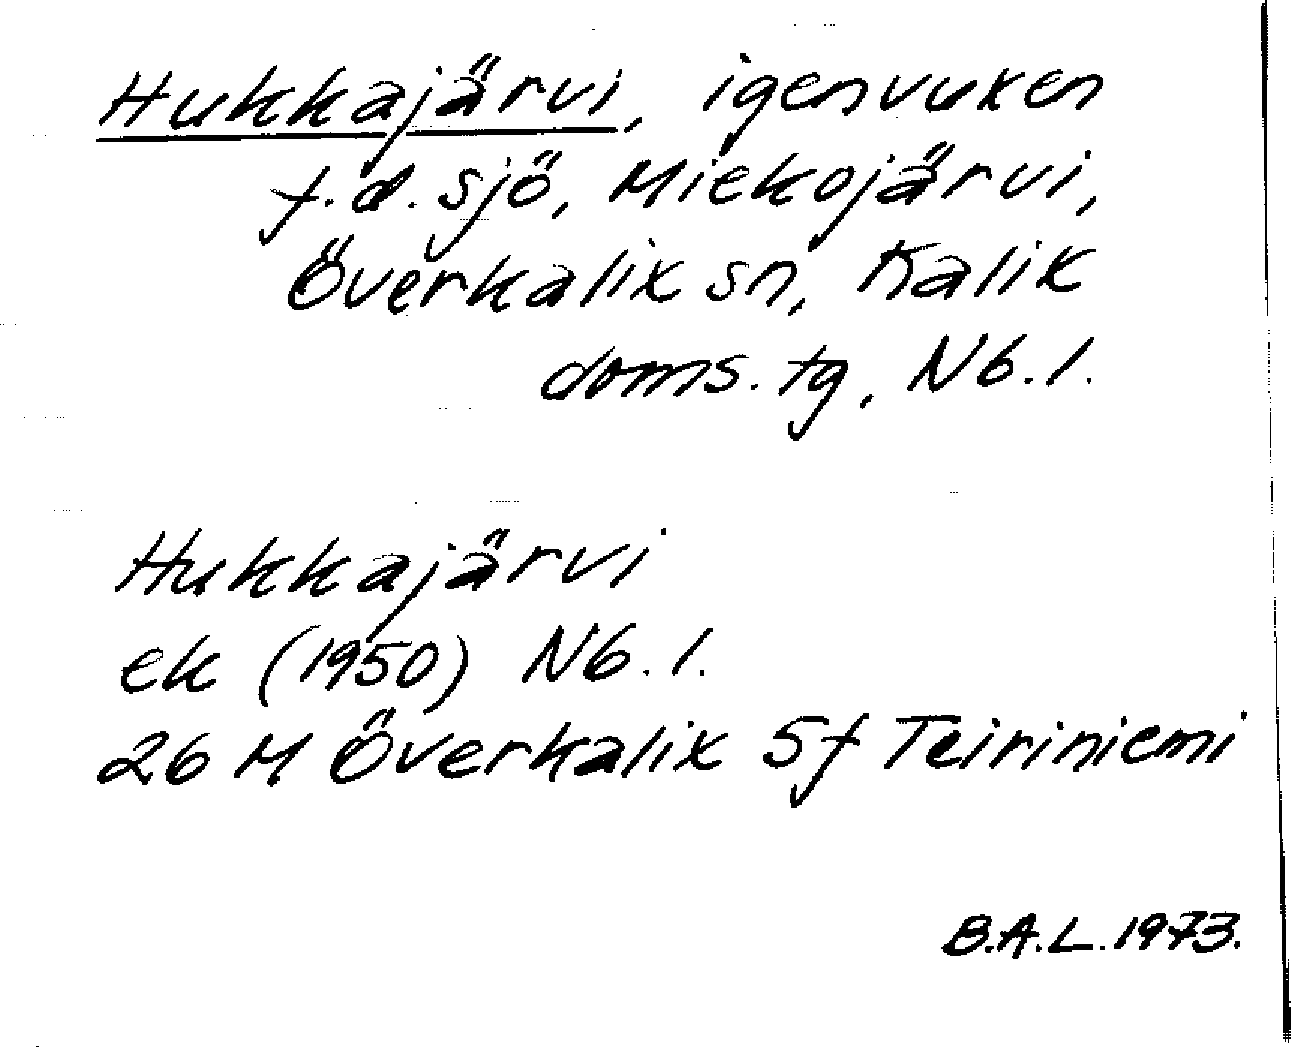 Hukkajärvi, igenvuxen
f.d. sjö, Miekojärvi,
Överkalix sn, Kalix
doms. tg, Nb. l.
Hukkajärvi
ek (1950) Nb. l.
26 M Överkalix 5f Teiriniemi
B.A.L. 1973.